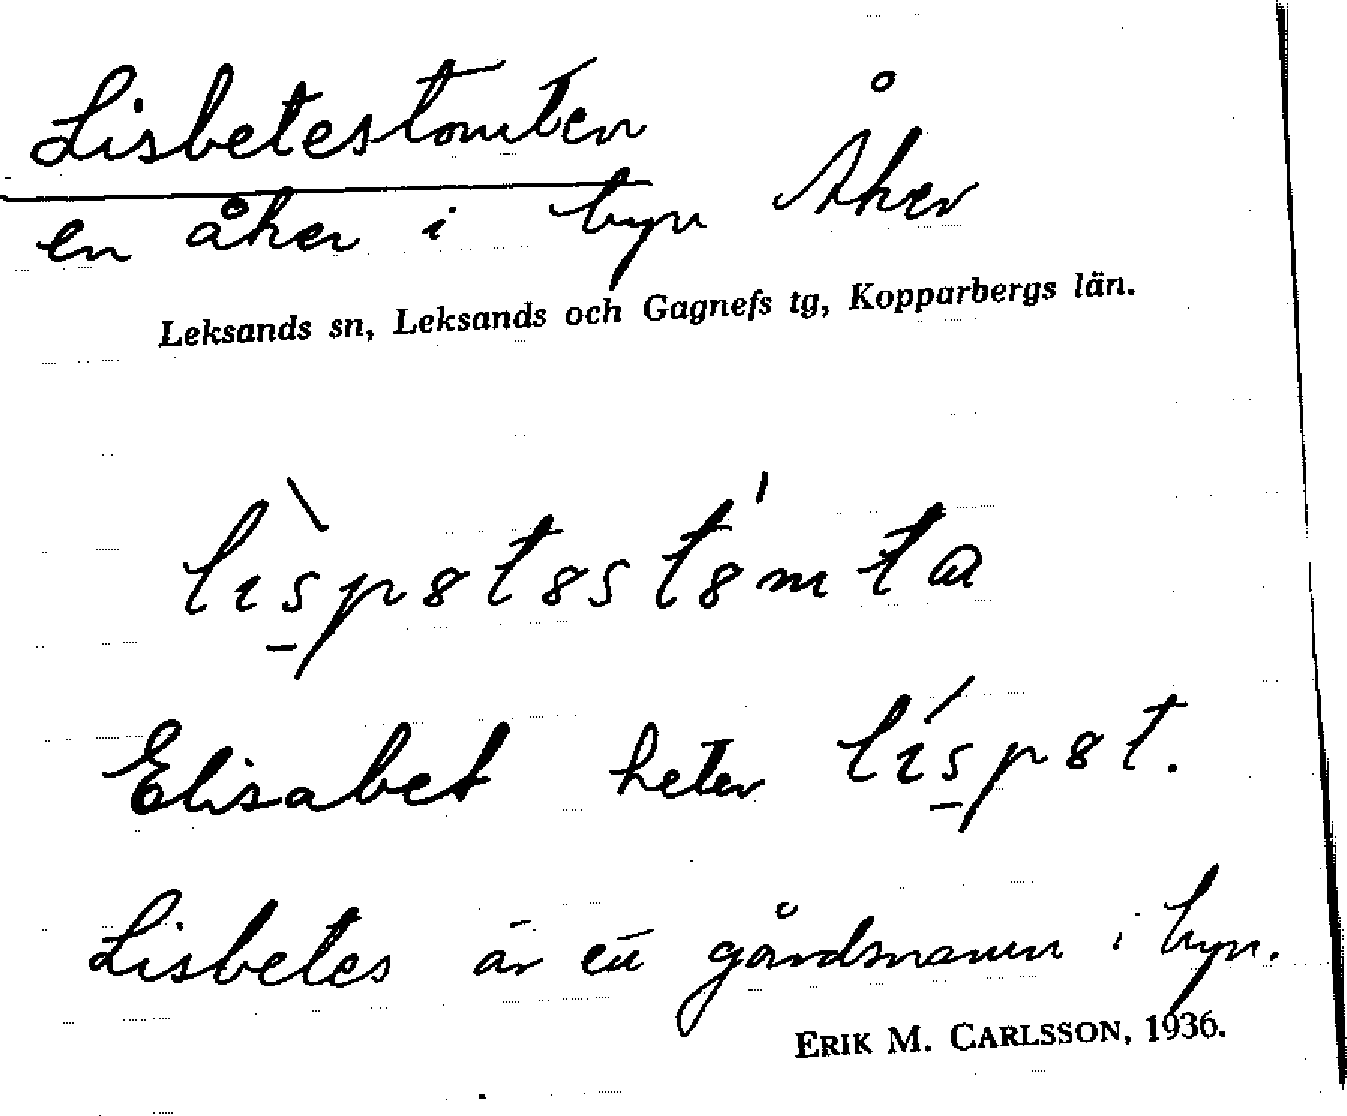 Lisbetestomten
en åker i byn Åker
Leksands sn, Leksands och Gagnefs tg, Kopparbergs län.
Elisabet heter
Lisbetes är ett gårdsnamn i byn.
ERIK M. CARLSSON, 1936.